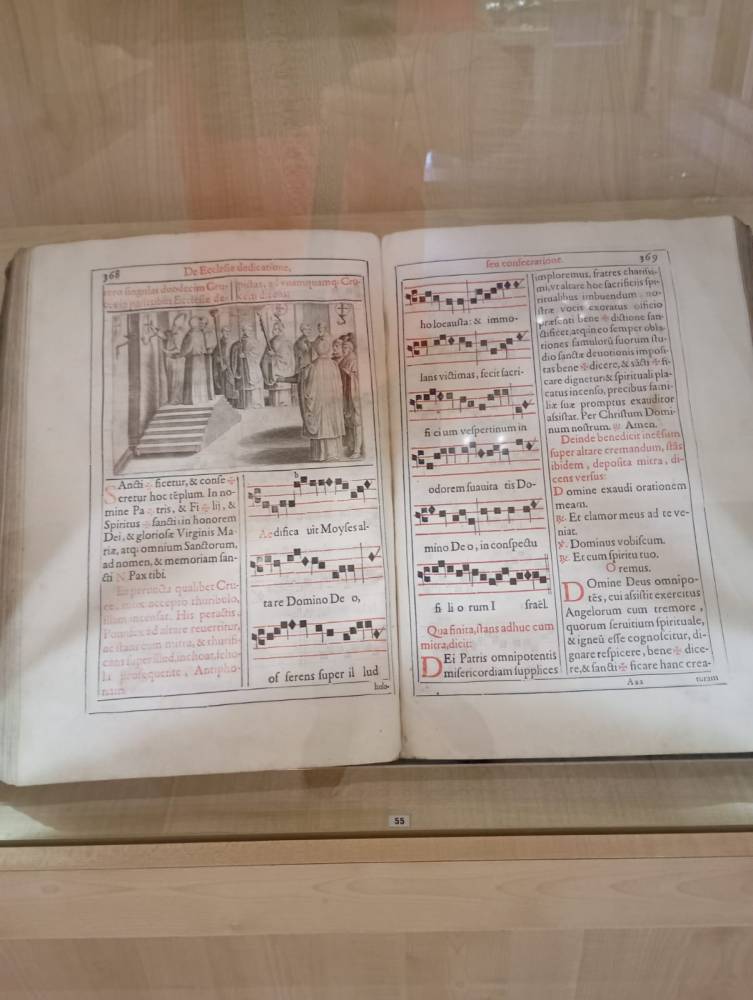 368
De Ecclesiæ dedicatione,
singulas duodecim Cru-
parietibus Ecclesiæ de-
ad vnamquamq; Cru-
cem dicens:
SAncti ✠ ficetur, & conse ✠
cretur hoc tẽplum. In no-
mine Pa ✠ tris, & Fi ✠ lij, &
Spiritus ✠ sancti: in honorem
Dei, & gloriosæ Virginis Ma-
riæ, atq; omnium Sanctorum,
ad nomen, & memoriam san-
cti N. Pax tibi.
Et peruncta qualibet Cru-
ce, mox accepto thuribulo,
illam incensat. His peractis,
Pontifex ad altare reuertitur,
ac stans cum mitra, & thurifi-
cans super illud, inchoat, scho-
la prosequente, Antipho-
nam.
Ae difica uit Moyses al-
ta re Domino De o,
of ferens super il lud
holo-
seu consecratione.
369
ho locausta: & immo-
lans victimas, fecit sacri-
fi ci um vespertinum in
odorem suauita tis Do-
mino De o, in conspectu
fi li o rum I srael.
Qua finita, stans adhuc cum
mitra, dicit:
DEi Patris omnipotentis
misericordiam supplices
imploremus, fratres charissi-
mi, vt altare hoc sacrificijs spi-
ritualibus imbuendum, no-
stræ vocis exoratus officio
præsenti bene ✠ dictione san-
ctificet, atq; in eo semper obla-
tiones famulorũ suorum stu-
dio sanctæ deuotionis imposi-
tas bene ✠ dicere, & sãcti ✠ fi-
care dignetur: & spirituali pla-
catus incenso, precibus fami-
liæ suæ promptus exauditor
assistat. Per Christum Domi-
num nostrum. ℟. Amen.
Deinde benedicit incẽsum
super altare cremandum, stãs
ibidem, deposita mitra, di-
cens versus:
Domine exaudi orationem
meam.
℟. Et clamor meus ad te ve-
niat.
℣. Dominus vobiscum.
℟. Et cum spiritu tuo.
Oremus.
DOmine Deus omnipo-
tẽs, cui assistit exercitus
Angelorum cum tremore,
quorum seruitium spirituale,
& igneũ esse cognoscitur, di-
gnare respicere, bene ✠ dice-
re, & sancti ✠ ficare hanc crea-
Aaa
turam
55